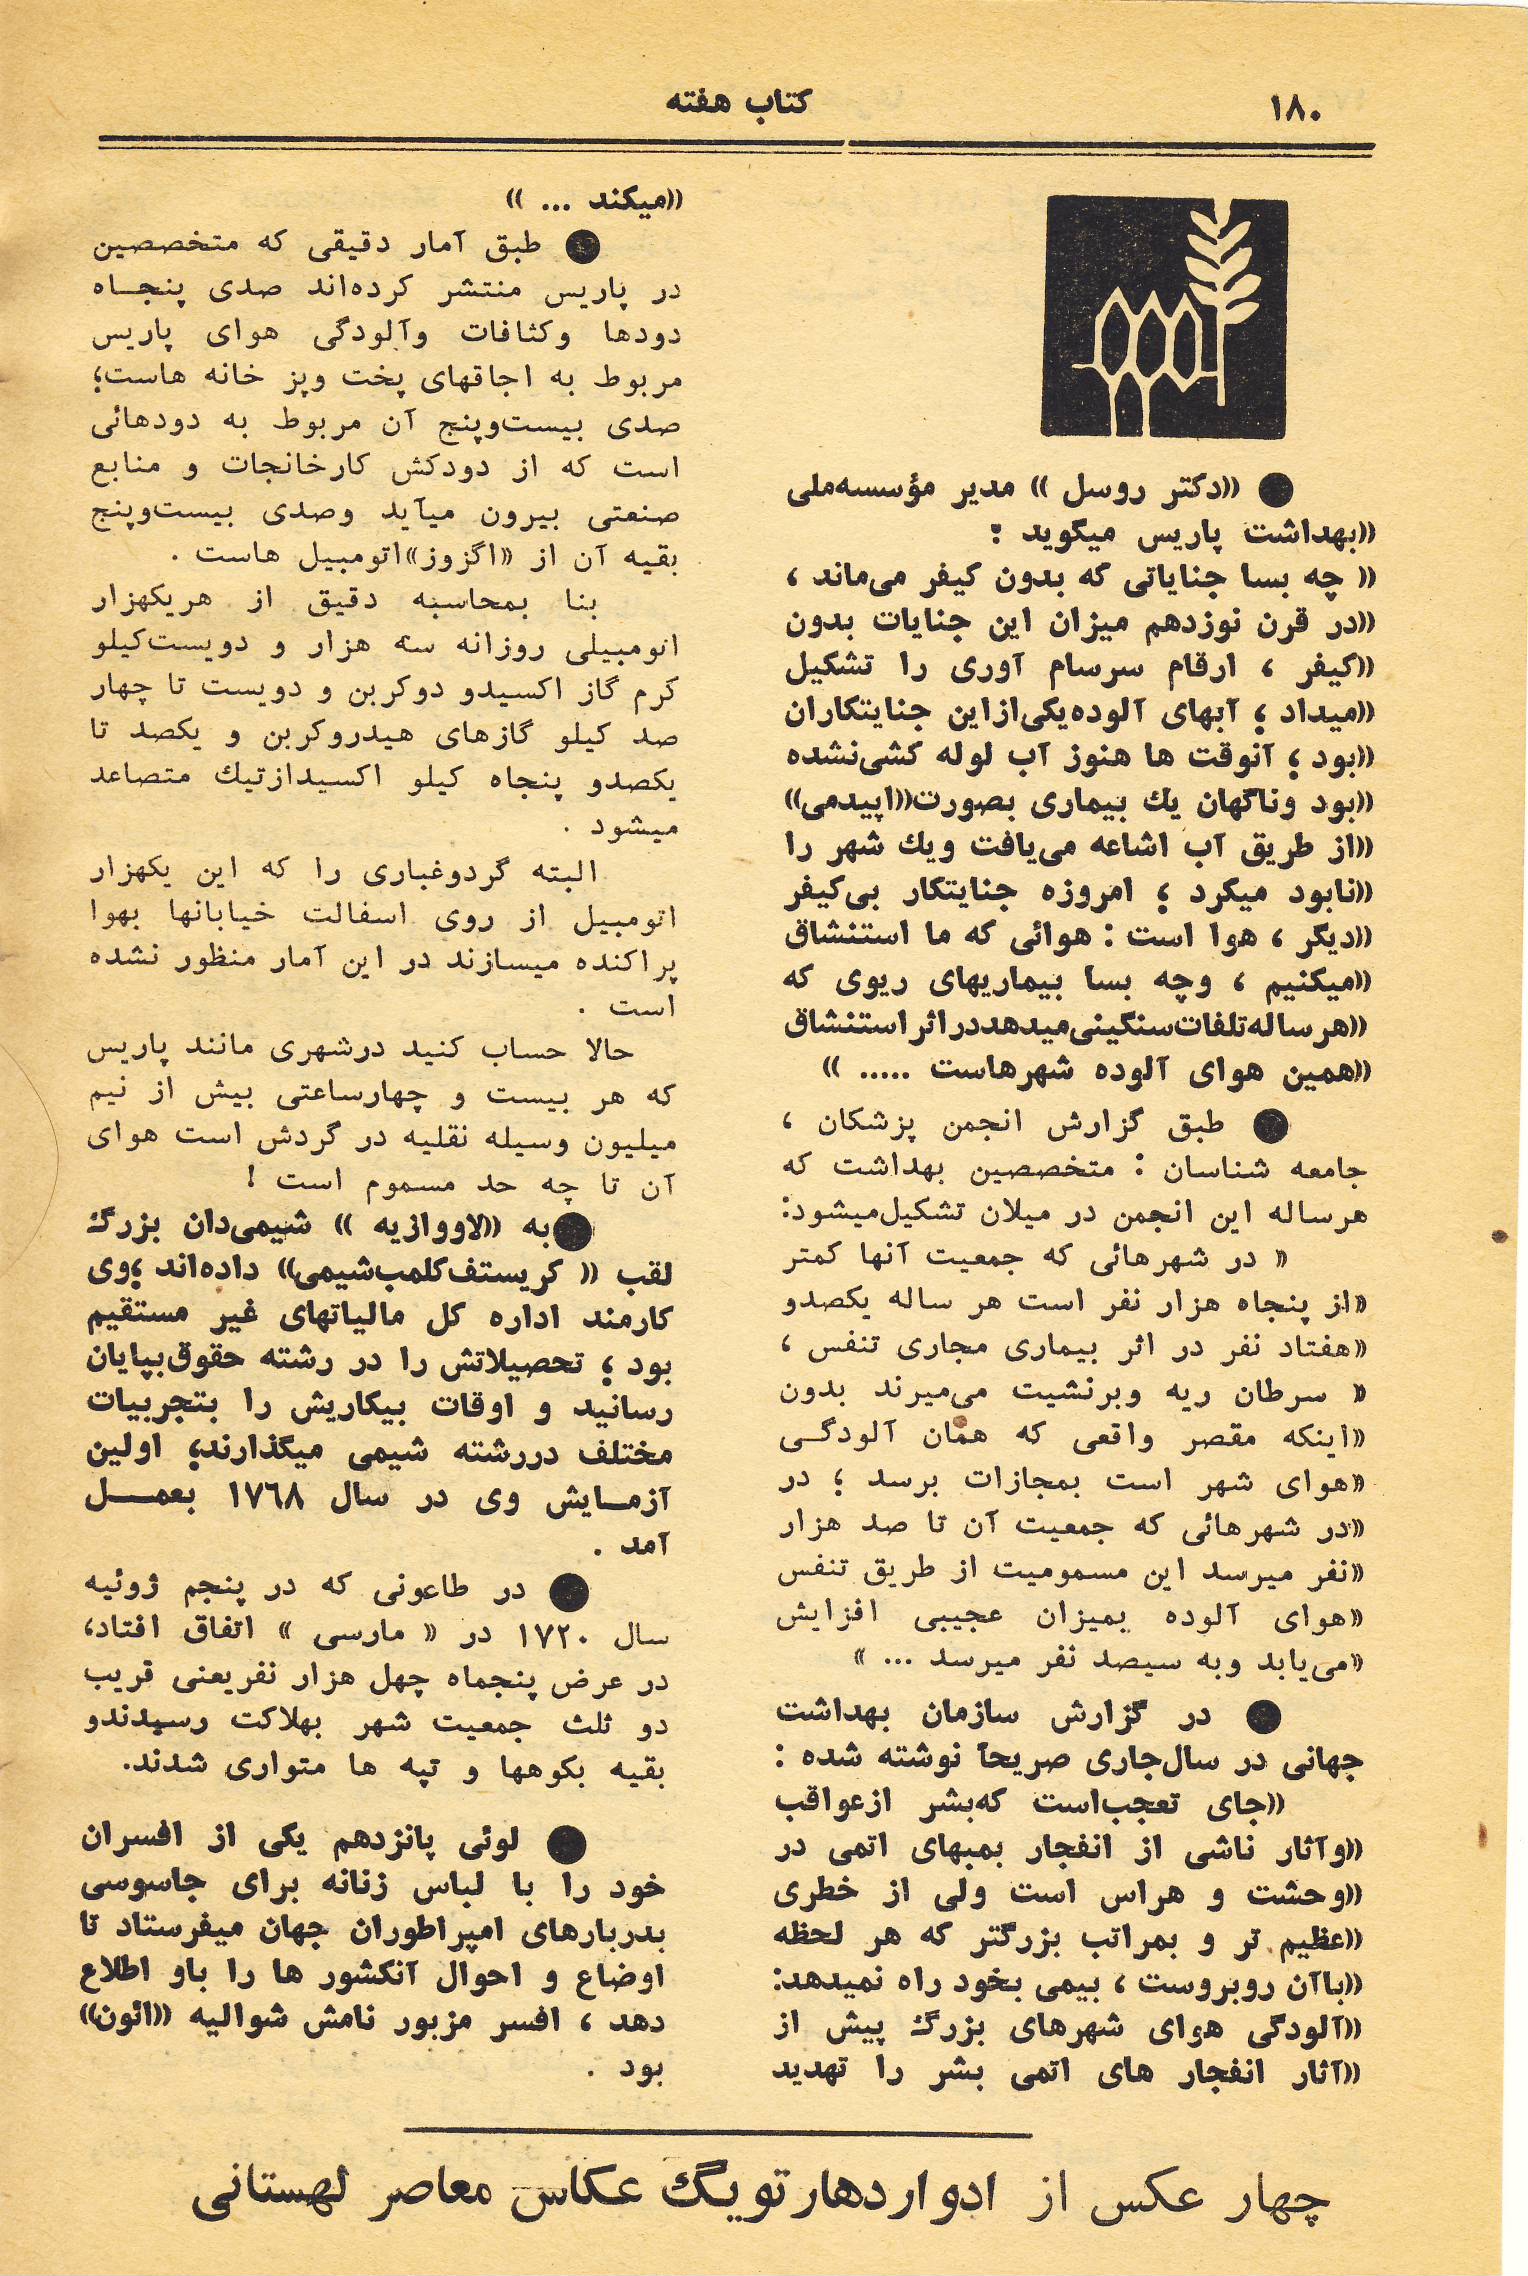 ۱۸۰
کتاب هفته
● «دکتر روسل» مدیر مؤسسه‌ملی
«بهداشت پاریس میگوید :
« چه بسا جنایاتی که بدون کیفر می‌ماند ،
«در قرن نوزدهم میزان این جنایات بدون
«کیفر ، ارقام سرسام آوری را تشکیل
«میداد ؛ آبهای آلوده‌یکی‌ازاین جنایتکاران
«بود ؛ آنوقت ها هنوز آب لوله کشی‌نشده
«بود وناگهان یك بیماری بصورت«اپیدمی»
«از طریق آب اشاعه می‌یافت ویك شهر را
«نابود میکرد ؛ امروزه جنایتکار بی‌کیفر
«دیگر ، هوا است : هوائی که ما استنشاق
«میکنیم ، وچه بسا بیماریهای ریوی که
«هرساله‌تلفات‌سنگینی‌میدهددراثراستنشاق
«همین هوای آلوده شهرهاست ..... »
● طبق گزارش انجمن پزشکان ،
جامعه شناسان : متخصصین بهداشت که
هرساله این انجمن در میلان تشکیل‌میشود:
« در شهرهائی که جمعیت آنها کمتر
«از پنجاه هزار نفر است هر ساله یکصدو
«هفتاد نفر در اثر بیماری مجاری تنفس ،
« سرطان ریه وبرنشیت می‌میرند بدون
«اینکه مقصر واقعی که همان آلودگـی
«هوای شهر است بمجازات برسد ؛ در
«در شهرهائی که جمعیت آن تا صد هزار
«نفر میرسد این مسمومیت از طریق تنفس
«هوای آلوده بمیزان عجیبی افزایش
«می‌یابد وبه سیصد نفر میرسد ... »
● در گزارش سازمان بهداشت
جهانی در سال‌جاری صریحاً نوشته شده :
«جای تعجب‌است که‌بشر ازعواقب
«وآثار ناشی از انفجار بمبهای اتمی در
«وحشت و هراس است ولی از خطری
«عظیم تر و بمراتب بزرگتر که هر لحظه
«باآن روبروست ، بیمی بخود راه نمیدهد:
«آلودگی هوای شهرهای بزرگ پیش از
«آثار انفجار های اتمی بشر را تهدید
«میکند ... »
● طبق آمار دقیقی که متخصصین
در پاریس منتشر کرده‌اند صدی پنجـاه
دودها وکثافات وآلودگی هوای پاریس
مربوط به اجاقهای پخت وپز خانه هاست؛
صدی بیست‌وپنج آن مربوط به دودهائی
است که از دودکش کارخانجات و منابع
صنعتی بیرون میآید وصدی بیست‌وپنج
بقیه آن از «اگزوز»اتومبیل هاست .
بنا بمحاسبه دقیق از هریکهزار
اتومبیلی روزانه سه هزار و دویست‌کیلو
گرم گاز اکسیدو دوکربن و دویست تا چهار
صد کیلو گازهای هیدروکربن و یکصد تا
یکصدو پنجاه کیلو اکسیدازتیك متصاعد
میشود .
البته گردوغباری را که این یکهزار
اتومبیل از روی اسفالت خیابانها بهوا
پراکنده میسازند در این آمار منظور نشده
است .
حالا حساب کنید درشهری مانند پاریس
که هر بیست و چهارساعتی بیش از نیم
میلیون وسیله نقلیه در گردش است هوای
آن تا چه حد مسموم است !
● به «لاووازیه » شیمی‌دان بزرگ
لقب « کریستف‌کلمب‌شیمی» داده‌اند ؛وی
کارمند اداره کل مالیاتهای غیر مستقیم
بود ؛ تحصیلاتش را در رشته حقوق‌بپایان
رسانید و اوقات بیکاریش را بتجربیات
مختلف دررشته شیمی میگذارند؛ اولین
آزمـایش وی در سال ۱۷٦۸ بعمـــل
آمد .
● در طاعونی که در پنجم ژوئیه
سال ۱۷۲۰ در « مارسی » اتفاق افتاد،
در عرض پنجماه چهل هزار نفریعنی قریب
دو ثلث جمعیت شهر بهلاکت رسیدندو
بقیه بکوهها و تپه ها متواری شدند.
● لوئی پانزدهم یکی از افسران
خود را با لباس زنانه برای جاسوسی
بدربارهای امپراطوران جهان میفرستاد تا
اوضاع و احوال آنکشور ها را باو اطلاع
دهد ، افسر مزبور نامش شوالیه «ائون»
بود .
چهار عکس از ادواردهارتویگ عکاس معاصر لهستانی